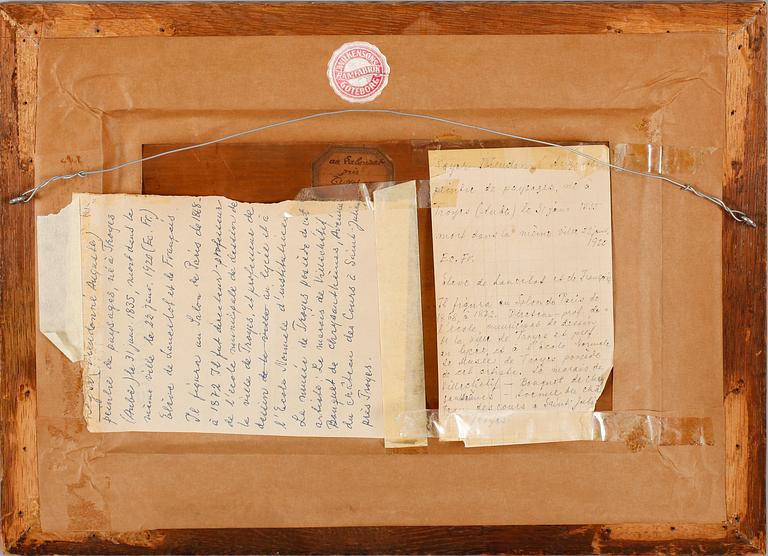 GÖTEBORG
au Labourat
près
Troyes
Dieudonné Auguste)
peintre de paysages, né à Troyes
(Aube) le 31 janv. 1835, mort dans la
même ville le 22 janv. 1920 (Ec. Fr.)
Elève de Lancelot et de Français
Il figura au Salon de Paris de 1868-
à 1872 Il fut directeur-professeur
de l'école municipale de dessin de
la ville de Troyes, et professeur de
dessin au lycée et à
l'Ecole Normale d'institutrices
Le musée de Troyes possède de cet
artiste: Le marais de Villechétif
Bouquet de chrysanthèmes, Avenue
du château des Cours à Saint-Julien
près Troyes.
Dieudonné
peintre de paysages, né à
Troyes (Aube) le 31 janv. 1835
mort dans la même ville 22 janv.
1920
Ec. Fr.
Elève de Lancelot et de Français
Il figura au Salon de Paris de
à 1872. Directeur-prof. de
l'école municipale de dessin
de la ville de Troyes et prof.
au lycée, et à l'école Normale
Le Musée de Troyes possède
de cet artiste: Le marais de
Villechétif — Bouquet de
— Avenue du châ
des cours à Saint-Julien
Troyes